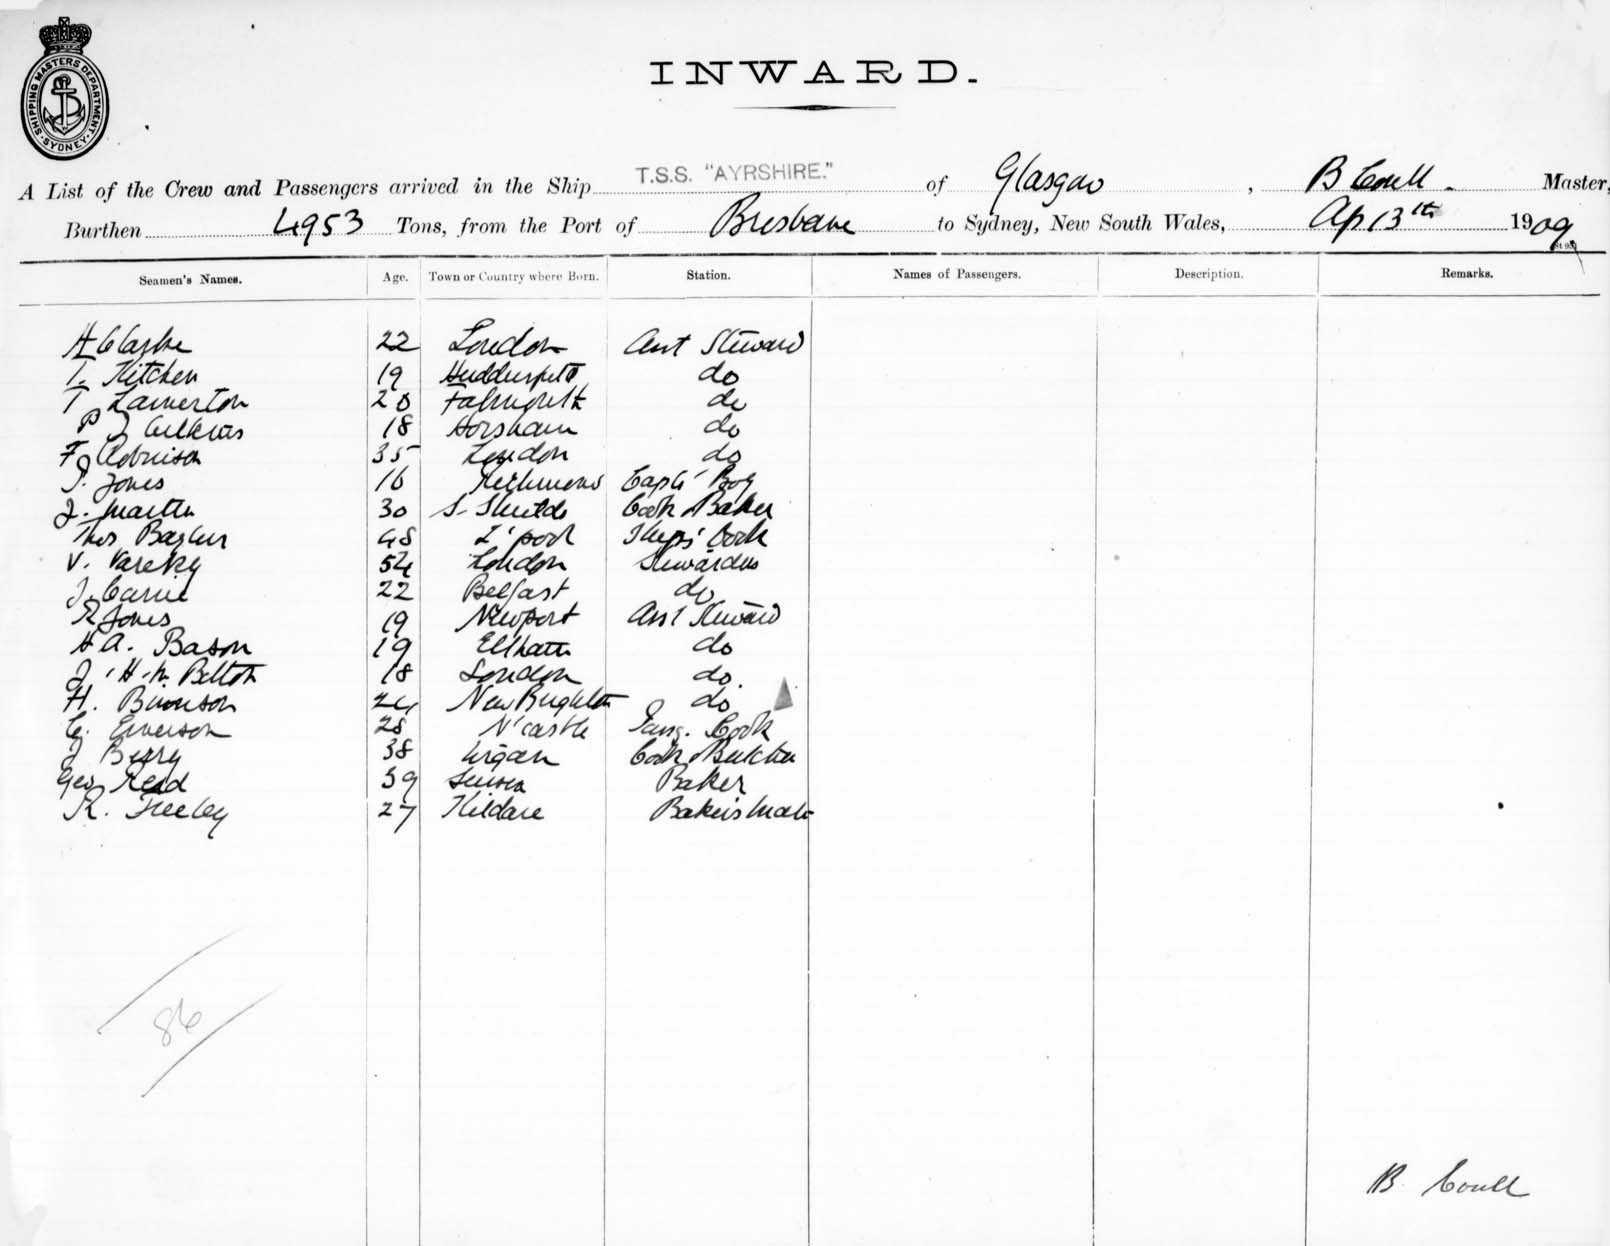 SHIPPING MASTERS DEPARTMENT
SYDNEY
INWARD.
A List of the Crew and Passengers arrived in the Ship T.S.S. "AYRSHIRE." of Glasgow, B Coull. Master,
Burthen 4953 Tons, from the Port of Brisbane to Sydney, New South Wales, Ap 13th 1909
Seamen's Names. Age. Town or Country where Born. Station. Names of Passengers. Description. Remarks.
H Clarke 22 London Asst Steward
T. Kitchen 19 do
T Lamerton 20 Falmouth do
18 Horsham do
F Robinson 35 London do
Jones 16 Richmond Capts' Boy
J. Martin 30 S. Shields Cook & Baker
Thos 48 L'pool Ships' Cook
V. 54 London Stewardess
J. Carrie 22 Belfast do
R Jones 19 Newport Asst Steward
H A. Bason 19 do
18 London do.
H. 24 New Brighton do
C. Emerson 28 N'castle Cook
J Berry 38 Wigan Cook & Butcher
Geo Read 39 Baker
R. Feeley 27 Kildare Bakers Mate
86
B. Coull